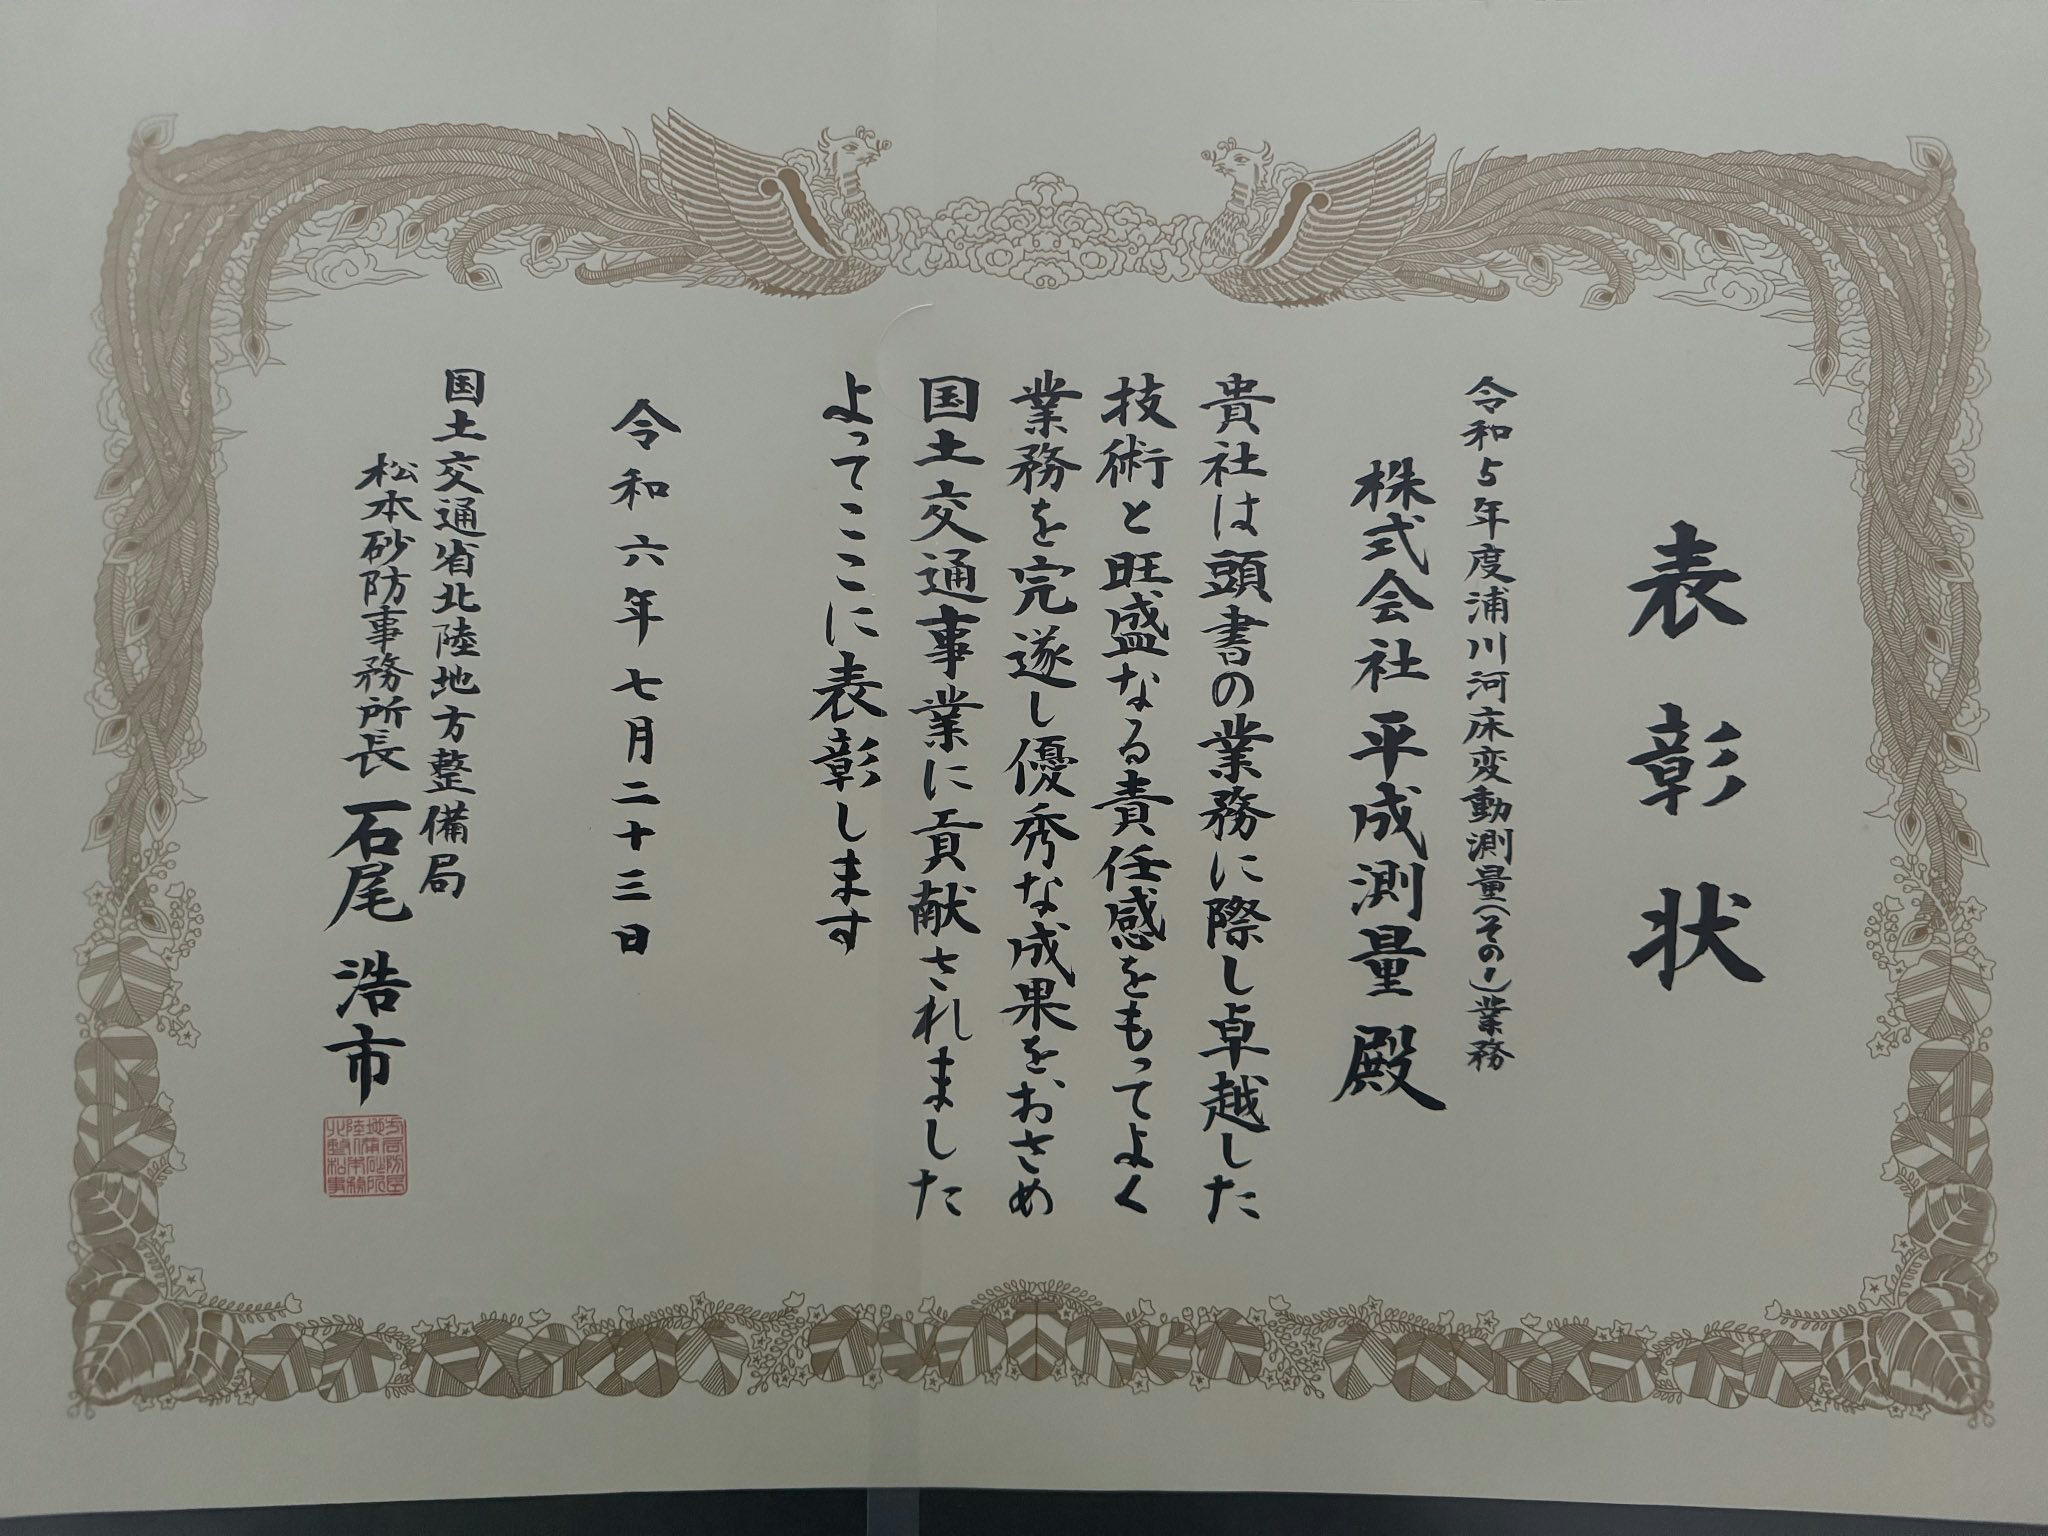 表彰状
令和5年度浦川河床変動測量(その1)業務
株式会社平成測量殿
貴社は頭書の業務に際し卓越した
技術と旺盛なる責任感をもってよく
業務を完遂し優秀な成果をおさめ
国土交通事業に貢献されました
よってここに表彰します
令和六年七月二十三日
国土交通省北陸地方整備局
松本砂防事務所長 石尾浩市